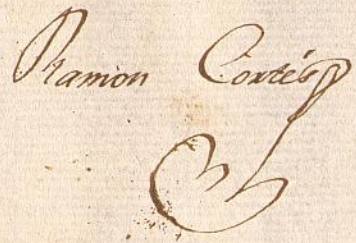 Ramon Cortés